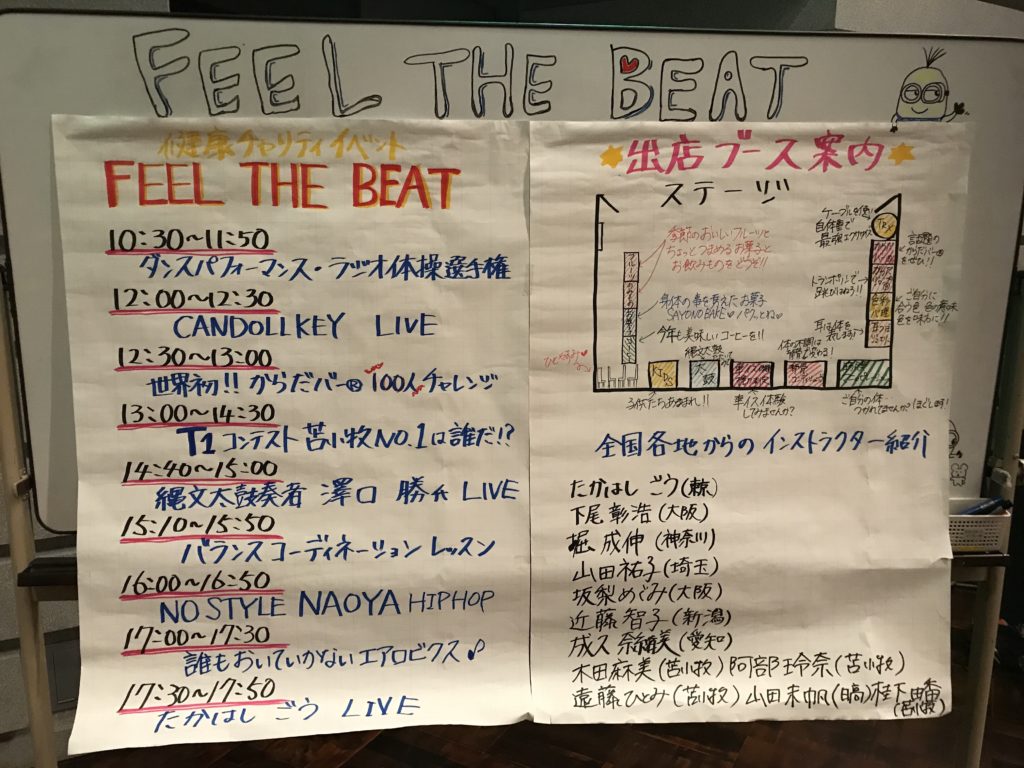 FEEL THE BEAT
健康チャリティイベント
FEEL THE BEAT
10:30〜11:50
ダンスパフォーマンス・ラジオ体操選手権
12:00〜12:30
CANDOLLKEY LIVE
12:30〜13:00
世界初!! からだバー® 100人チャレンジ
13:00〜14:30
T1コンテスト 苫小牧NO.1は誰だ!?
14:40〜15:00
縄文太鼓奏者 澤口 勝氏 LIVE
15:10〜15:50
バランスコーディネーション レッスン
16:00〜16:50
NO STYLE NAOYA HIPHOP
17:00〜17:30
誰もおいていかないエアロビクス♪
17:30〜17:50
たかはし ごう LIVE
出店ブース案内
ステージ
季節のおいしいフルーツと
ちょっとつまめるお菓子と
お飲みものをどうぞ!!
身体の事を考えたお菓子
SAYONO BAKE パクっとね
今年も美味しいコーヒーを!!
縄文太鼓
ケーブルを使い
自体重で
最強エクササイズ
TRX
話題の
からだバー®を
ぜひ!!
トランポリンで
跳びはねよう!!
ご自分に
合う色
色の意味
色を味方に!!
KIDS
太鼓
子供たちあつまれ!!
車イス体験
してみませんか?
ご自分の体…
つかれてませんか?ほぐします!
全国各地からの インストラクター紹介
たかはし ごう(東京)
下尾 彰浩(大阪)
堀 成伸(神奈川)
山田 祐子(埼玉)
坂梨めぐみ(大阪)
近藤 智子(新潟)
成久 奈緒美(愛知)
木田麻美(苫小牧) 阿部 玲奈(苫小牧)
遠藤ひとみ(苫小牧) 山田 未帆(日高) 桂下 由香(苫小牧)